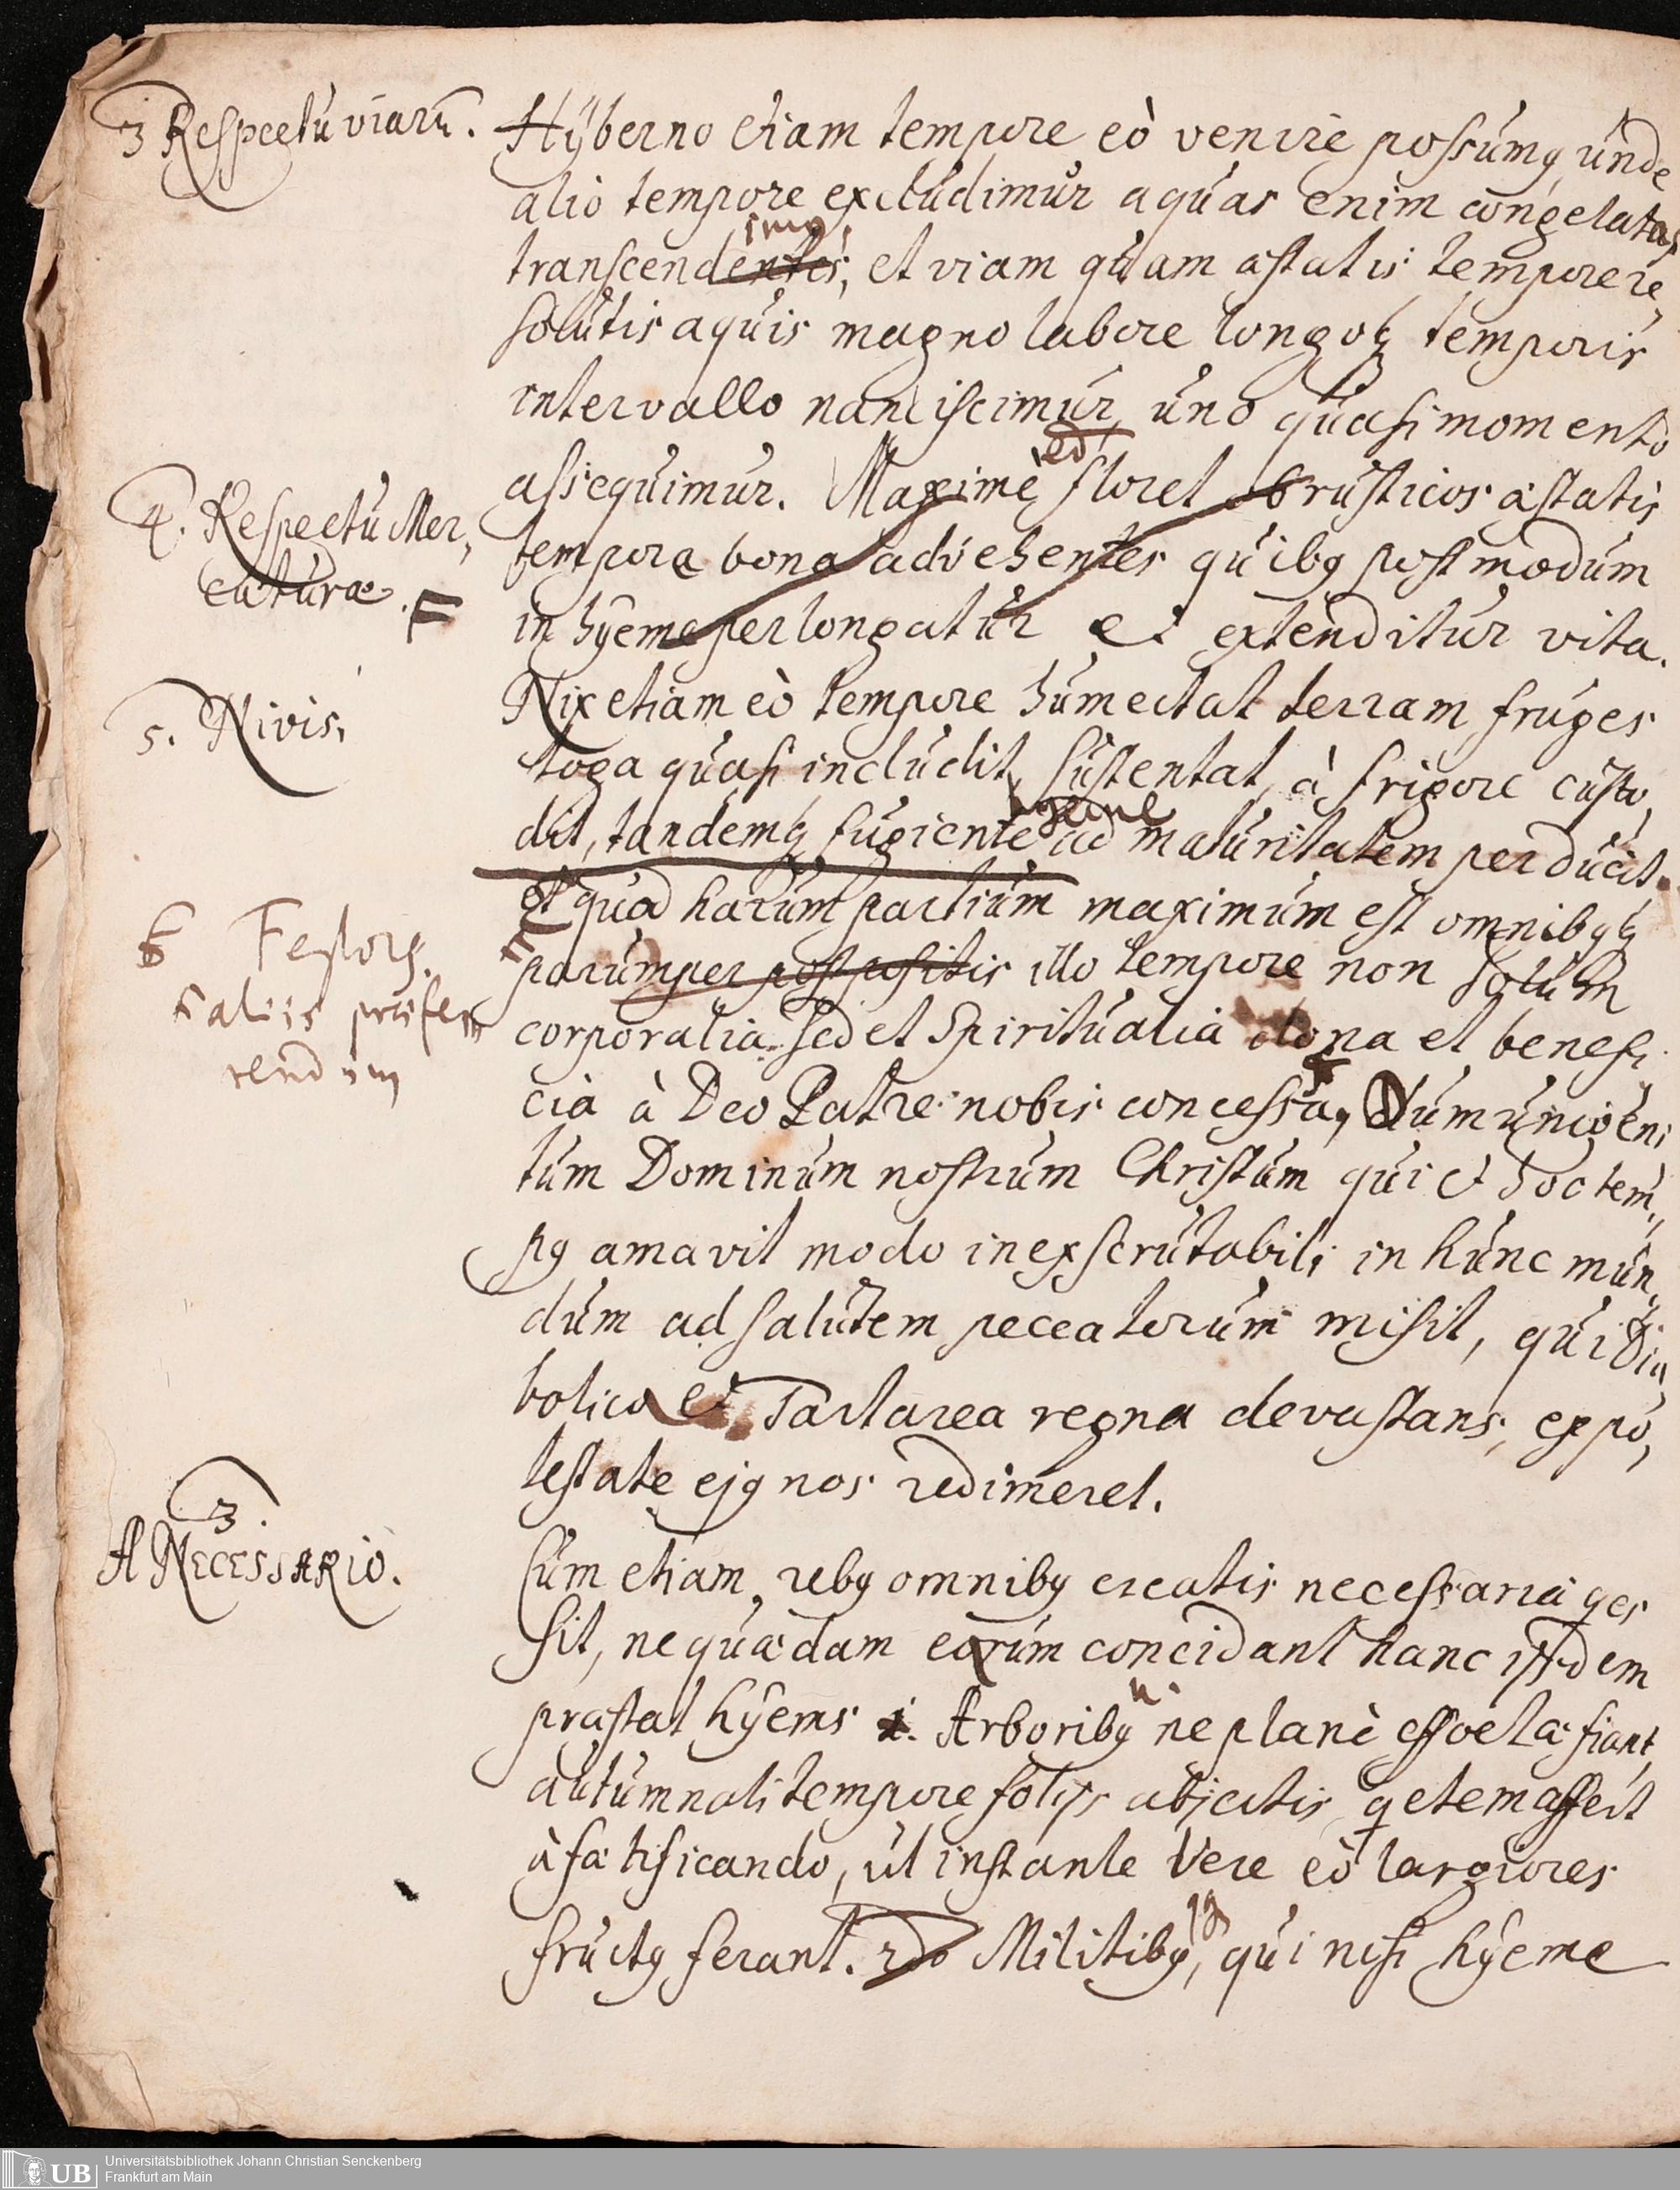 3 Respectu viarū.
Hÿberno etiam tempore eò venire possumꝰ unde
alio tempore excludimur aquas enim congelatas
imꝰ
transcendentes, et viam quam æstatis tempore re
solutis aquis magno labore longoqꝫ temporis
intervallo nanciscimur, uno quasi momento
eò
assequimur. Maximè floret ob rusticos æstatis
4. Respectu Mer,
caturæ. F
tempora bona advehentes quibꝰ postmodum
in hÿeme perlongatur et extenditur vita.
5. Nivis,
Nix etiam eò tempore humectat terram fruges
toga quasi includit, sustentat, à frigore custo,
hyeme
dit, tandemqꝫ fugiente ad maturitatem perducit.
6 Festorꝫ.
aliis præfe
rendum
Et quod harum partium maximum est omnibꝰqꝫ
parumper postpositis illo tempore non solum
corporalia sed et Spiritualia dona et benefi
cia à Deo Patre nobis concessa, dum unigeni
tum Dominum nostrum Christum qui et hoc tem,
pꝰ amavit modo inexscrutabili in hunc mun,
dum ad salutem peccatorum misit, qui Dia
bolica et Tartarea regna devastans, ex po,
testate ejꝰ nos redimeret.
3.
A NECESSARIO.
Cum etiam, rebꝰ omnibꝰ creatis necessaria qes
sit, ne quædam eorum concidant hanc iisdem
præstat hÿems 1. Arboribꝰ ne planè effoetæ fiant
autumnali tempore folijs abjectis qetem affert
à fætificando, ut instante Vere eò largiores
fructꝰ ferant. 2do Militibꝰ, qui nisi hÿeme
Universitätsbibliothek Johann Christian Senckenberg
UB Frankfurt am Main